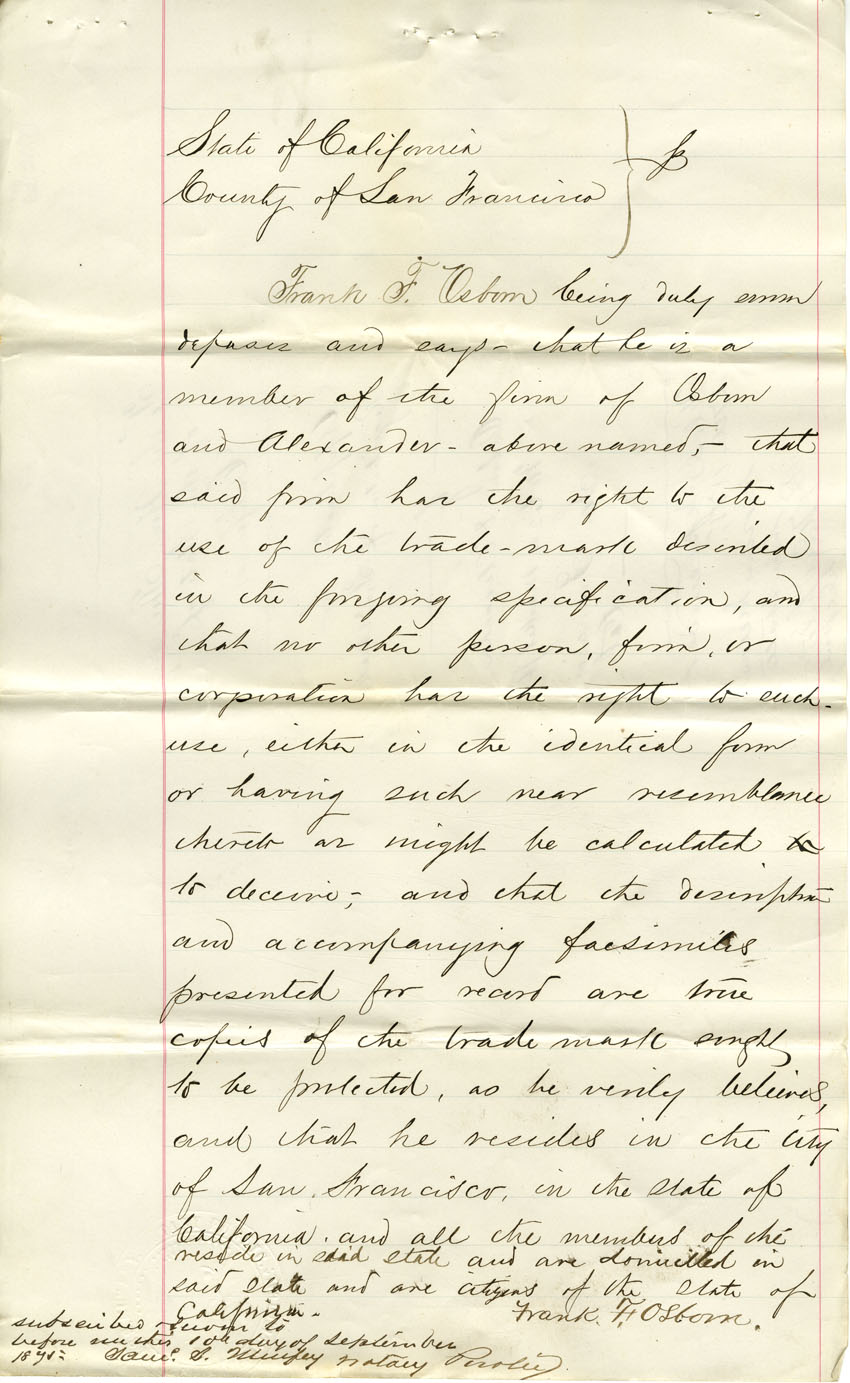 State of California
County of San Francisco } ss
Frank F. Osborn being duly sworn
deposes and says - that he is a
member of the firm of Osborn
and Alexander - above named, - that
said firm has the right to the
use of the trade-mark described
in the foregoing specification, and
that no other person, firm, or
corporation has the right to such
use, either in the identical form
or having such near resemblance
thereto as might be calculated to
to deceive; and that the description
and accompanying facsimiles
presented for record are true
copies of the trade mark sought
to be protected, as he verily believes,
and that he resides in the City
of San Francisco, in the State of
California. and all the members of the
reside in said state and are domiciled in
said state and are citizens of the State of
California.
Frank. F. Osborn.
subscribed & sworn to
before me this 10th day of September
Notary Public